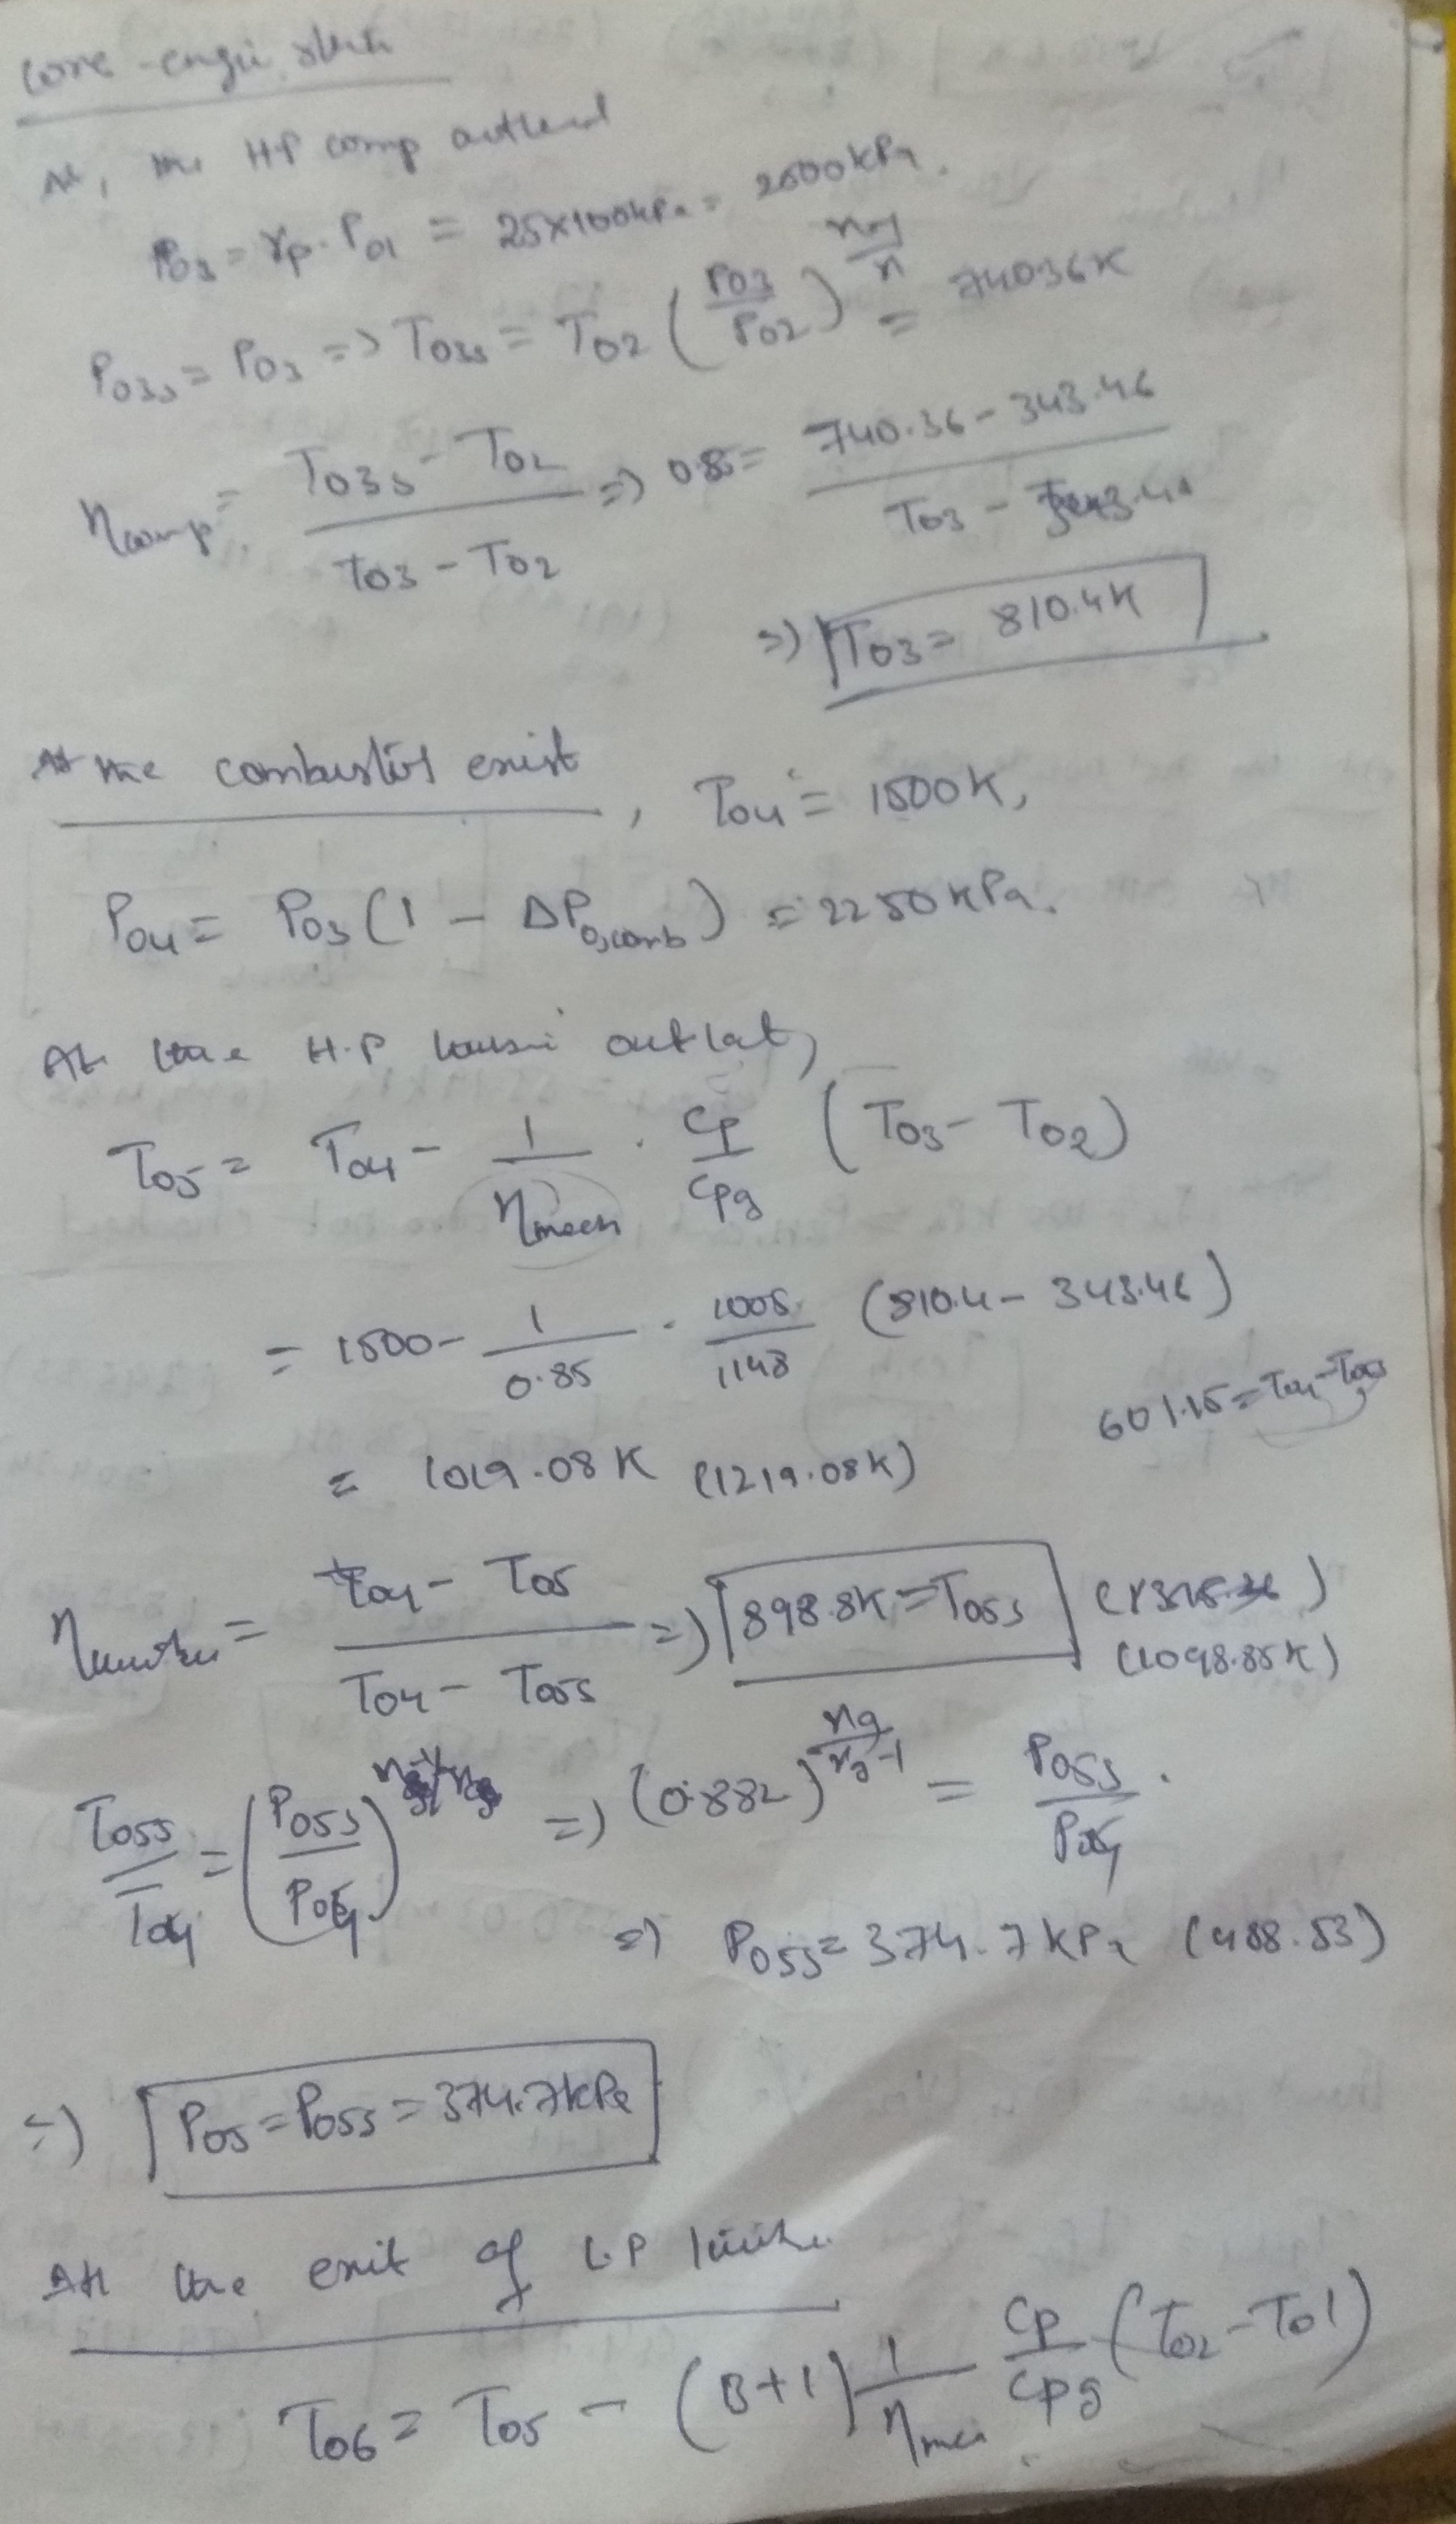 core engi
At, the HP comp outlend
P03 = rp. P01 = 25x100kPa = 2500kPa.
P03s = P03 => T03s = T02 (P03/P02)^(n-1/n) = 740.36K
ηcomp = (T03s - T02)/(T03 - T02) => 0.85 = (740.36 - 343.46)/(T03 - 343.46)
=> T03 = 810.4K
At the combustor exist, T04 = 1500K,
P04 = P03 (1 - ΔP0,comb) = 2250kPa.
At the H.P outlat,
T05 = T04 - 1/ηmech . Cp/Cpg (T03 - T02)
= 1500 - 1/0.85 . 1005/1148 (810.4 - 343.46)
601.15 = T04 - T05s
= 1019.08K (1219.08K)
η = (T04 - T05)/(T04 - T05s) => 898.8K = T05s
(1098.85K)
T05s/T04 = (P05s/P04) => (0.882)^(ng/rg-1) = P05s/P04.
=> P05s = 374.7kPa (488.53)
=> P05 = P05s = 374.7kPa
At the exit of L.P
T06 = T05 - (B+1) 1/ηmec Cp/Cpg (T02 - T01)